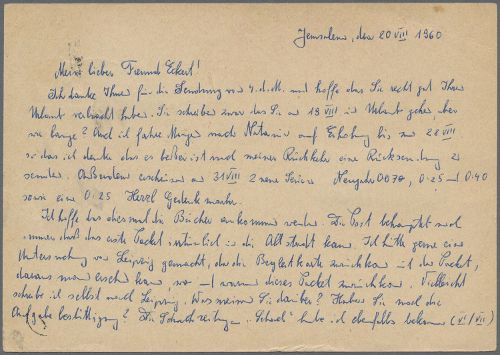 Jerusalem, den 20 VIII 1960
Mein lieber Freund Eckert!
Ich danke Ihnen für die Sendung vom 4. d. M. und hoffe das Sie recht gut Ihren
Urlaub verbracht haben. Sie schreiben zwar das Sie am 18 VIII in Urlaub gehen, aber
wie lange? Auch ich fahre Morgen nach Natania auf Erholung bis zum 28 VIII
so das ich denke das es besser ist nach meiner Rückkehr eine Rücksendung zu
senden. Außerdem erscheinen am 31 VIII 2 neue Serien Neujahr 0.07, 0.25 und 0.40
sowie eine 0.25 Herzl Gedenkmarke.
Ich hoffe das diesmal die Bücher ankommen werden. Die Post behauptet noch
immer das das erste Packet irrtümlich in die Altstadt kam. Ich hätte gerne eine
Untersuchung von Leipzig gemacht, da die Begleitkarte zurückkam mit das Packet,
daraus man ersehen kann, wo und warum dieses Packet zurückkam. Vielleicht
schreibe ich selbst nach Leipzig. Was meinen Sie darüber? Haben Sie noch die
Aufgabe bestättigung? Die Schachzeitung "Schach" habe ich ebenfalls bekommen (VI/VII)